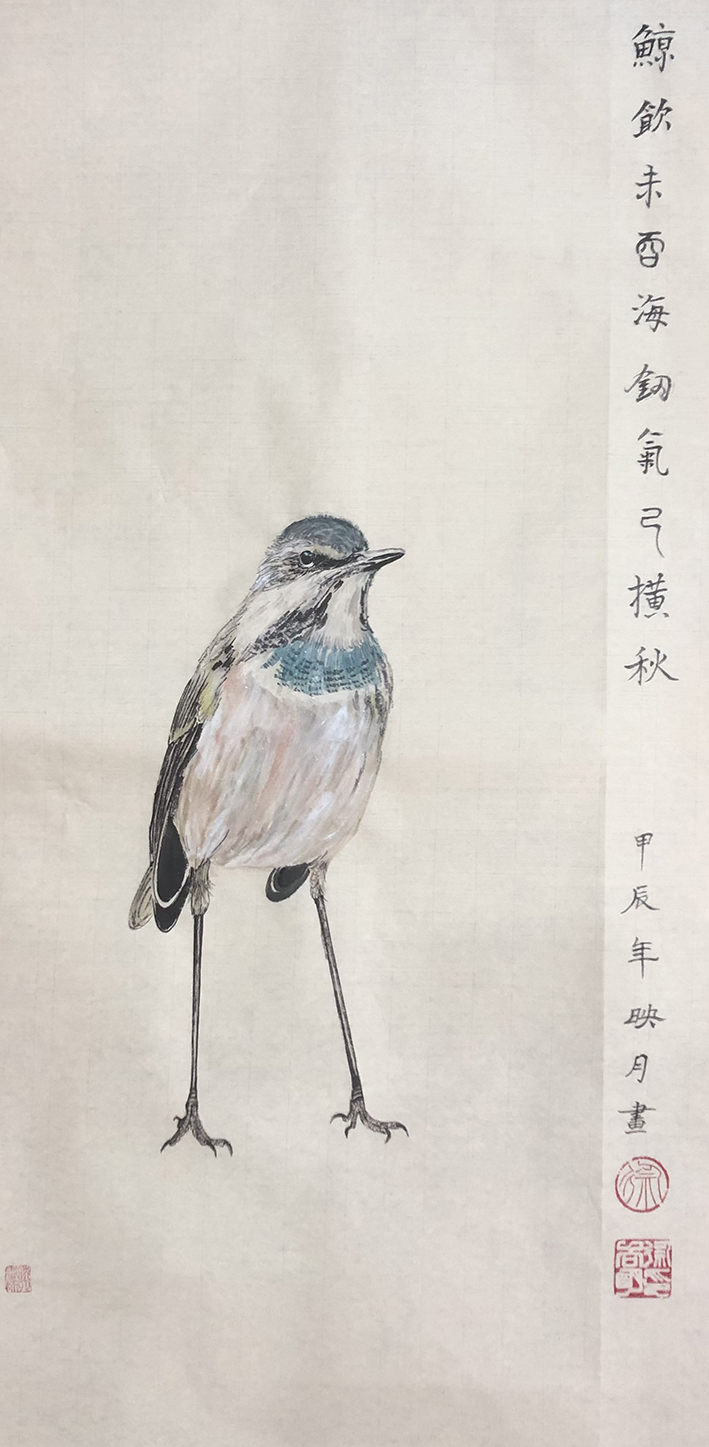 鯨飲未吞海釼氣已橫秋
甲辰年映月畫
徐